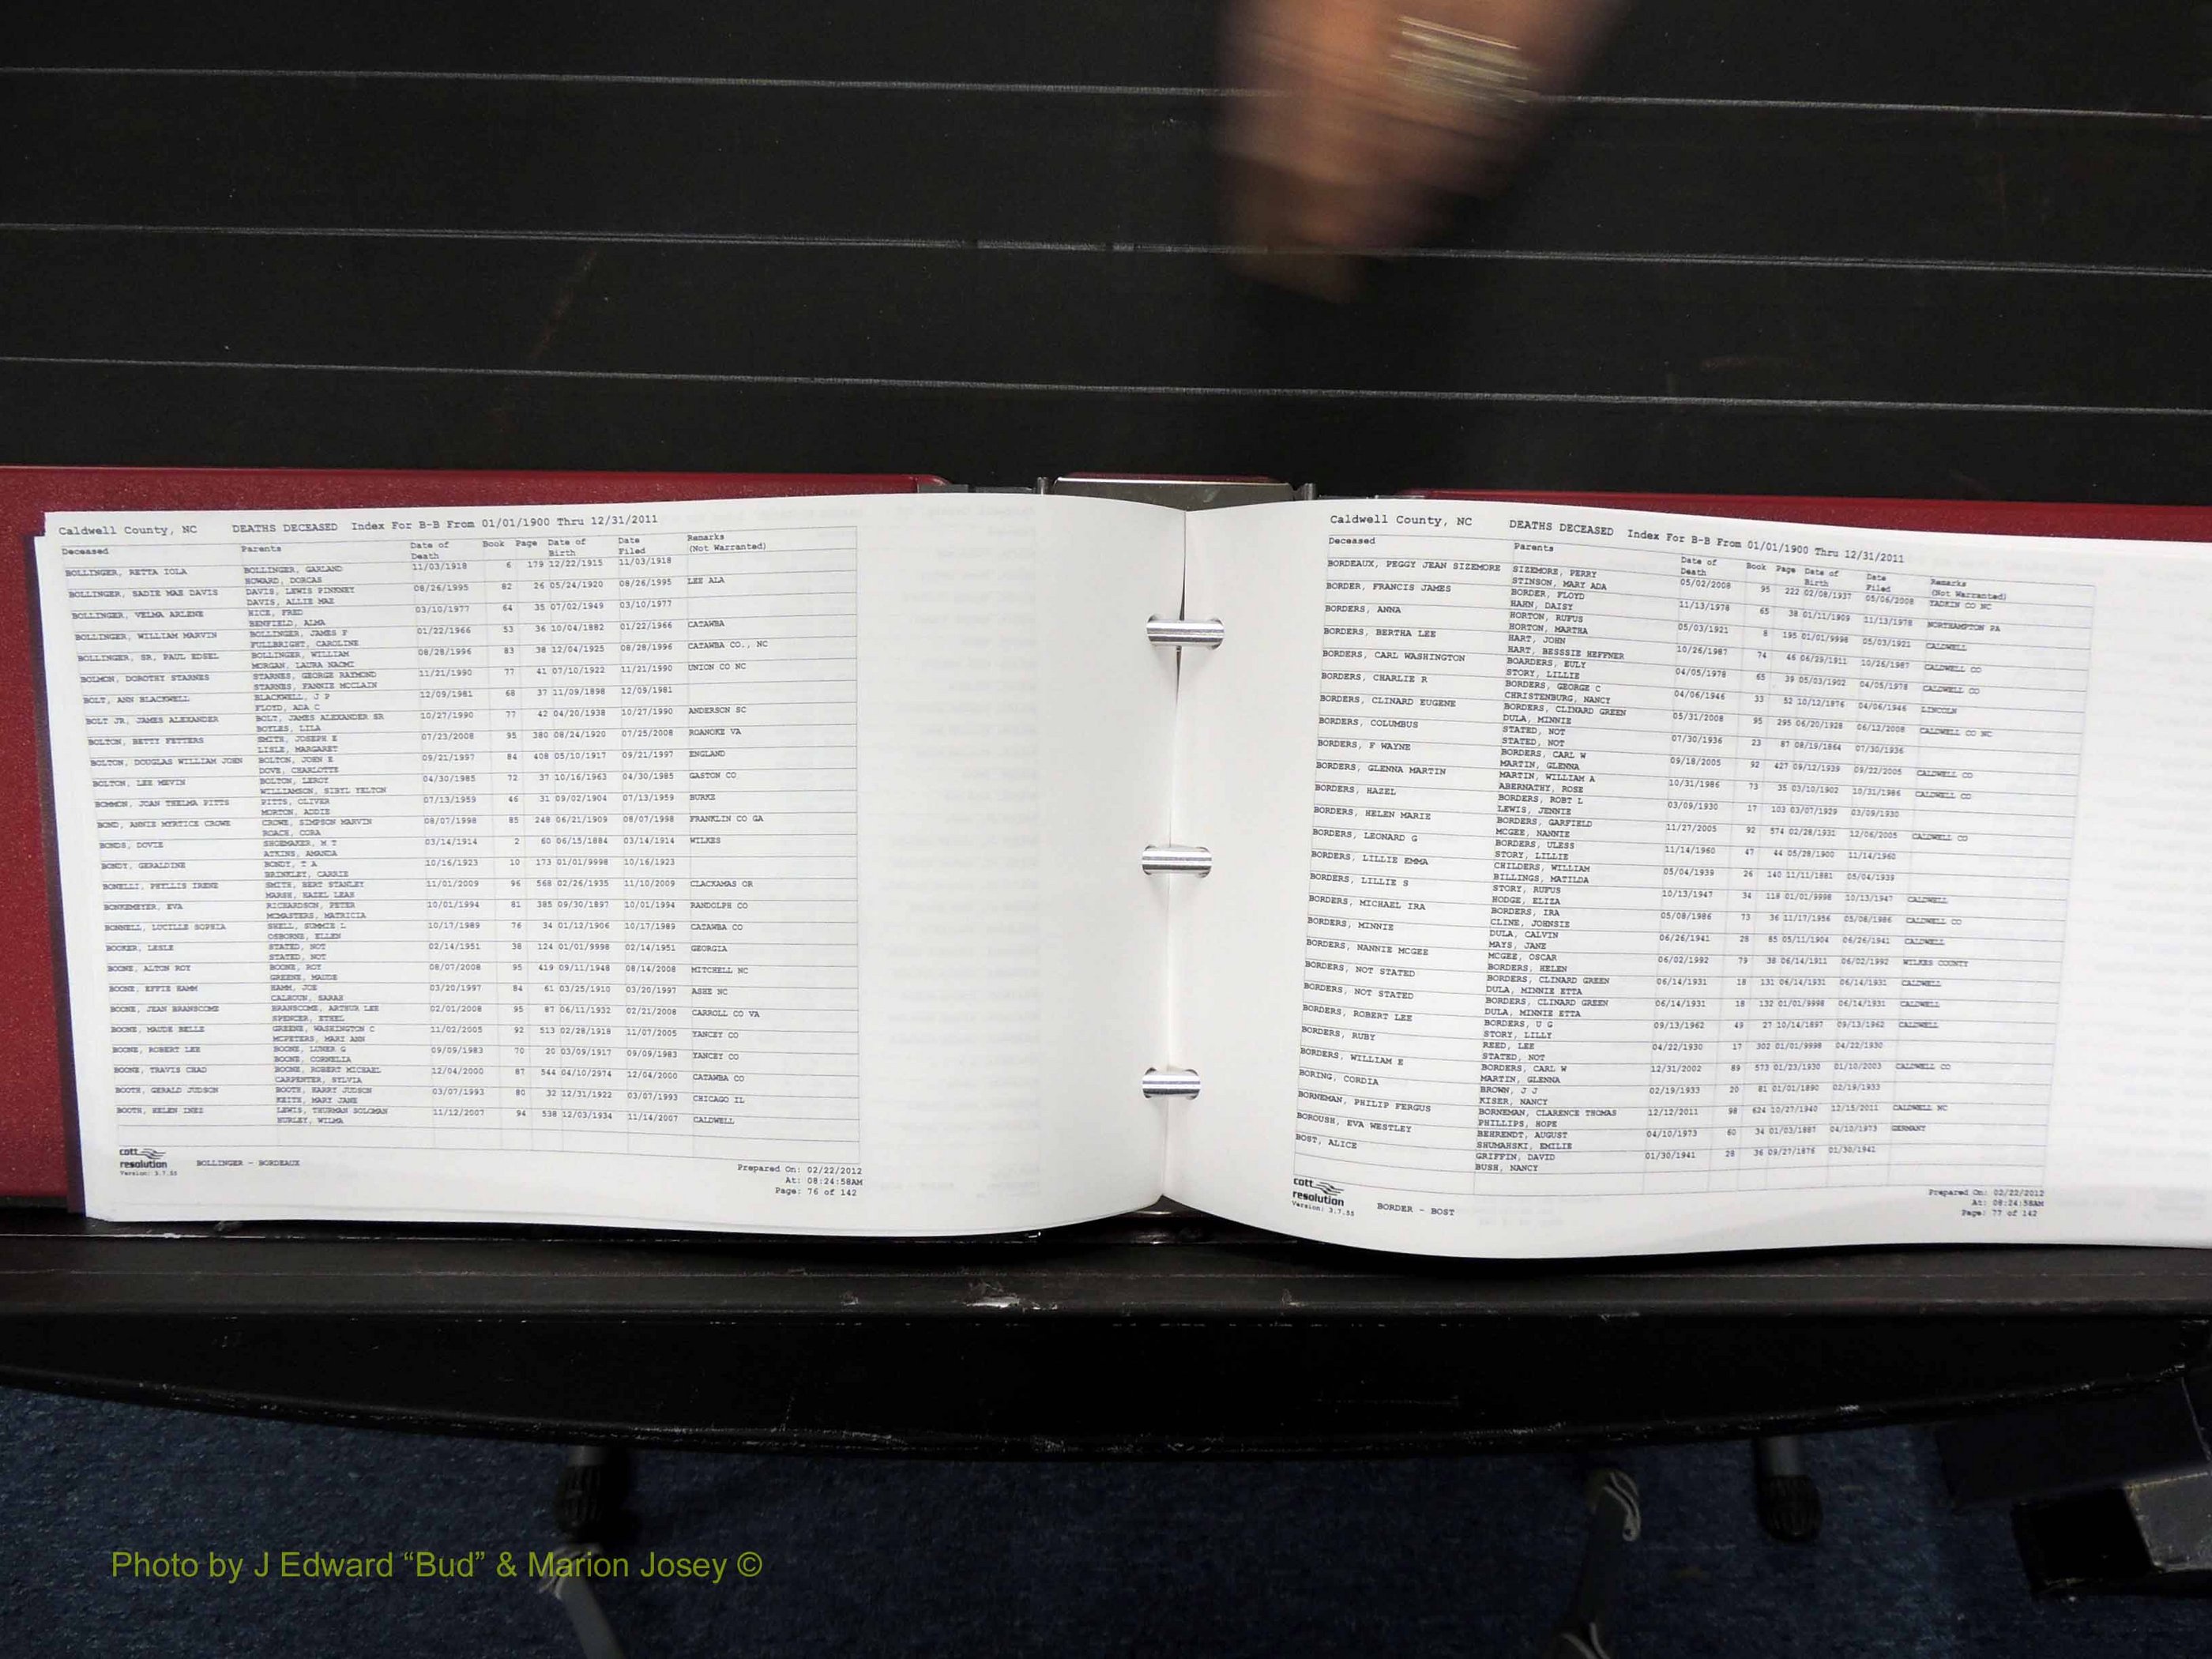 Caldwell County, NC DEATHS DECEASED Index For B-B From 01/01/1900 Thru 12/31/2011
Deceased Parents Date of Death Book Page Date of Birth Date Filed Remarks (Not Warranted)
BOLLINGER, RETTA IOLA BOLLINGER, GARLAND 11/03/1918 6 179 12/22/1915 11/03/1918
HOWARD, DORCAS
BOLLINGER, SADIE MAE DAVIS DAVIS, LEWIS PINKNEY 08/26/1995 82 26 05/24/1920 08/26/1995 LEE ALA
DAVIS, ALLIE MAE
BOLLINGER, VELMA ARLENE HICE, FRED 03/10/1977 64 35 07/02/1949 03/10/1977
BENFIELD, ALMA
BOLLINGER, WILLIAM MARVIN BOLLINGER, JAMES F 01/22/1966 53 36 10/04/1882 01/22/1966 CATAWBA
FULLBRIGHT, CAROLINE
BOLLINGER, SR, PAUL EDSEL BOLLINGER, WILLIAM 08/28/1996 83 38 12/04/1925 08/28/1996 CATAWBA CO., NC
MORGAN, LAURA NAOMI
BOLMON, DOROTHY STARNES STARNES, GEORGE RAYMOND 11/21/1990 77 41 07/10/1922 11/21/1990 UNION CO NC
STARNES, FANNIE MCCLAIN
BOLT, ANN BLACKWELL BLACKWELL, J P 12/09/1981 68 37 11/09/1898 12/09/1981
FLOYD, ADA C
BOLT JR, JAMES ALEXANDER BOLT, JAMES ALEXANDER SR 10/27/1990 77 42 04/20/1938 10/27/1990 ANDERSON SC
BOYLES, LILA
BOLTON, BETTY FETTERS SMITH, JOSEPH E 07/23/2008 95 380 08/24/1920 07/25/2008 ROANOKE VA
LISLE, MARGARET
BOLTON, DOUGLAS WILLIAM JOHN BOLTON, JOHN E 09/21/1997 84 408 05/10/1917 09/21/1997 ENGLAND
DOVE, CHARLOTTE
BOLTON, LEE MEVIN BOLTON, LEROY 04/30/1985 72 37 10/16/1963 04/30/1985 GASTON CO
WILLIAMSON, SIBYL YELTON
BOMMON, JOAN THELMA PITTS PITTS, OLIVER 07/13/1959 46 31 09/02/1904 07/13/1959 BURKE
MORTON, ADDIE
BOND, ANNIE MYRTICE CROWE CROWE, SIMPSON MARVIN 08/07/1998 85 248 06/21/1909 08/07/1998 FRANKLIN CO GA
ROACH, CORA
BONDS, DOVIE SHOEMAKER, M T 03/14/1914 2 60 06/15/1884 03/14/1914 WILKES
ATKINS, AMANDA
BONDY, GERALDINE BONDY, T A 10/16/1923 10 173 01/01/9998 10/16/1923
BRINKLEY, CARRIE
BONELLI, PHYLLIS IRENE SMITH, BERT STANLEY 11/01/2009 96 568 02/26/1935 11/10/2009 CLACKAMAS OR
MARSH, HAZEL LEAH
BONKEMEYER, EVA RICHARDSON, PETER 10/01/1994 81 385 09/30/1897 10/01/1994 RANDOLPH CO
MCMASTERS, MATRICIA
BONNELL, LUCILLE SOPHIA SHELL, SUMMIE L 10/17/1989 76 34 01/12/1906 10/17/1989 CATAWBA CO
OSBORNE, ELLEN
BOOKER, LESLE STATED, NOT 02/14/1951 38 124 01/01/9998 02/14/1951 GEORGIA
STATED, NOT
BOONE, ALTON ROY BOONE, ROY 08/07/2008 95 419 09/11/1948 08/14/2008 MITCHELL NC
GREENE, MAUDE
BOONE, EFFIE HAMM HAMM, JOE 03/20/1997 84 61 03/25/1910 03/20/1997 ASHE NC
CALHOUN, SARAH
BOONE, JEAN BRANSCOME BRANSCOME, ARTHUR LEE 02/01/2008 95 87 06/11/1932 02/21/2008 CARROLL CO VA
SPENCER, ETHEL
BOONE, MAUDE BELLE GREENE, WASHINGTON C 11/02/2005 92 513 02/28/1918 11/07/2005 YANCEY CO
MCPETERS, MARY ANN
BOONE, ROBERT LEE BOONE, LUNER G 09/09/1983 70 20 03/09/1917 09/09/1983 YANCEY CO
BOONE, CORNELIA
BOONE, TRAVIS CHAD BOONE, ROBERT MICHAEL 12/04/2000 87 544 04/10/2974 12/04/2000 CATAWBA CO
CARPENTER, SYLVIA
BOOTH, GERALD JUDSON BOOTH, HARRY JUDSON 03/07/1993 80 32 12/31/1922 03/07/1993 CHICAGO IL
KEITH, MARY JANE
BOOTH, HELEN INEZ LEWIS, THURMAN SOLOMAN 11/12/2007 94 538 12/03/1934 11/14/2007 CALDWELL
HURLEY, WILMA
cott
resolution
Version: 3.7.55
BOLLINGER - BORDEAUX
Prepared On: 02/22/2012
At: 08:24:58AM
Page: 76 of 142
Caldwell County, NC DEATHS DECEASED Index For B-B From 01/01/1900 Thru 12/31/2011
Deceased Parents Date of Death Book Page Date of Birth Date Filed Remarks (Not Warranted)
BORDEAUX, PEGGY JEAN SIZEMORE SIZEMORE, PERRY 05/02/2008 95 222 02/08/1937 05/06/2008 YADKIN CO NC
STINSON, MARY ADA
BORDER, FRANCIS JAMES BORDER, FLOYD 11/13/1978 65 38 01/11/1909 11/13/1978 NORTHAMPTON PA
HAHN, DAISY
BORDERS, ANNA HORTON, RUFUS 05/03/1921 8 195 01/01/9998 05/03/1921 CALDWELL
HORTON, MARTHA
BORDERS, BERTHA LEE HART, JOHN 10/26/1987 74 46 06/29/1911 10/26/1987 CALDWELL CO
HART, BESSSIE HEFFNER
BORDERS, CARL WASHINGTON BOARDERS, EULY 04/05/1978 65 39 05/03/1902 04/05/1978 CALDWELL CO
STORY, LILLIE
BORDERS, CHARLIE R BORDERS, GEORGE C 04/06/1946 33 52 10/12/1876 04/06/1946 LINCOLN
CHRISTENBURG, NANCY
BORDERS, CLINARD EUGENE BORDERS, CLINARD GREEN 05/31/2008 95 295 06/20/1928 06/12/2008 CALDWELL CO NC
DULA, MINNIE
BORDERS, COLUMBUS STATED, NOT 07/30/1936 23 87 08/19/1864 07/30/1936
STATED, NOT
BORDERS, F WAYNE BORDERS, CARL W 09/18/2005 92 427 09/12/1939 09/22/2005 CALDWELL CO
MARTIN, GLENNA
BORDERS, GLENNA MARTIN MARTIN, WILLIAM A 10/31/1986 73 35 03/10/1902 10/31/1986 CALDWELL CO
ABERNATHY, ROSE
BORDERS, HAZEL BORDERS, ROBT L 03/09/1930 17 103 03/07/1929 03/09/1930
LEWIS, JENNIE
BORDERS, HELEN MARIE BORDERS, GARFIELD 11/27/2005 92 574 02/28/1931 12/06/2005 CALDWELL CO
MCGEE, NANNIE
BORDERS, LEONARD G BORDERS, ULESS 11/14/1960 47 44 05/28/1900 11/14/1960
STORY, LILLIE
BORDERS, LILLIE EMMA CHILDERS, WILLIAM 05/04/1939 26 140 11/11/1881 05/04/1939
BILLINGS, MATILDA
BORDERS, LILLIE S STORY, RUFUS 10/13/1947 34 118 01/01/9998 10/13/1947 CALDWELL
HODGE, ELIZA
BORDERS, MICHAEL IRA BORDERS, IRA 05/08/1986 73 36 11/17/1956 05/08/1986 CALDWELL CO
CLINE, JOHNSIE
BORDERS, MINNIE DULA, CALVIN 06/26/1941 28 85 05/11/1904 06/26/1941 CALDWELL
MAYS, JANE
BORDERS, NANNIE MCGEE MCGEE, OSCAR 06/02/1992 79 38 06/14/1911 06/02/1992 WILKES COUNTY
BORDERS, HELEN
BORDERS, NOT STATED BORDERS, CLINARD GREEN 06/14/1931 18 131 06/14/1931 06/14/1931 CALDWELL
DULA, MINNIE ETTA
BORDERS, NOT STATED BORDERS, CLINARD GREEN 06/14/1931 18 132 01/01/9998 06/14/1931 CALDWELL
DULA, MINNIE ETTA
BORDERS, ROBERT LEE BORDERS, U G 09/13/1962 49 27 10/14/1897 09/13/1962 CALDWELL
STORY, LILLY
BORDERS, RUBY REED, LEE 04/22/1930 17 302 01/01/9998 04/22/1930
STATED, NOT
BORDERS, WILLIAM E BORDERS, CARL W 12/31/2002 89 573 01/23/1930 01/10/2003 CALDWELL CO
MARTIN, GLENNA
BORING, CORDIA BROWN, J J 02/19/1933 20 81 01/01/1890 02/19/1933
KISER, NANCY
BORNEMAN, PHILIP FERGUS BORNEMAN, CLARENCE THOMAS 12/12/2011 98 624 10/27/1940 12/15/2011 CALDWELL NC
PHILLIPS, HOPE
BOROUSH, EVA WESTLEY BEHRENDT, AUGUST 04/10/1973 60 34 01/03/1887 04/10/1973 GERMANY
SHUMAHSKI, EMILIE
BOST, ALICE GRIFFIN, DAVID 01/30/1941 28 36 09/27/1876 01/30/1941
BUSH, NANCY
cott
resolution
Version: 3.7.55
BORDER - BOST
Prepared On: 02/22/2012
At: 08:24:58AM
Page: 77 of 142
Photo by J Edward “Bud” & Marion Josey ©